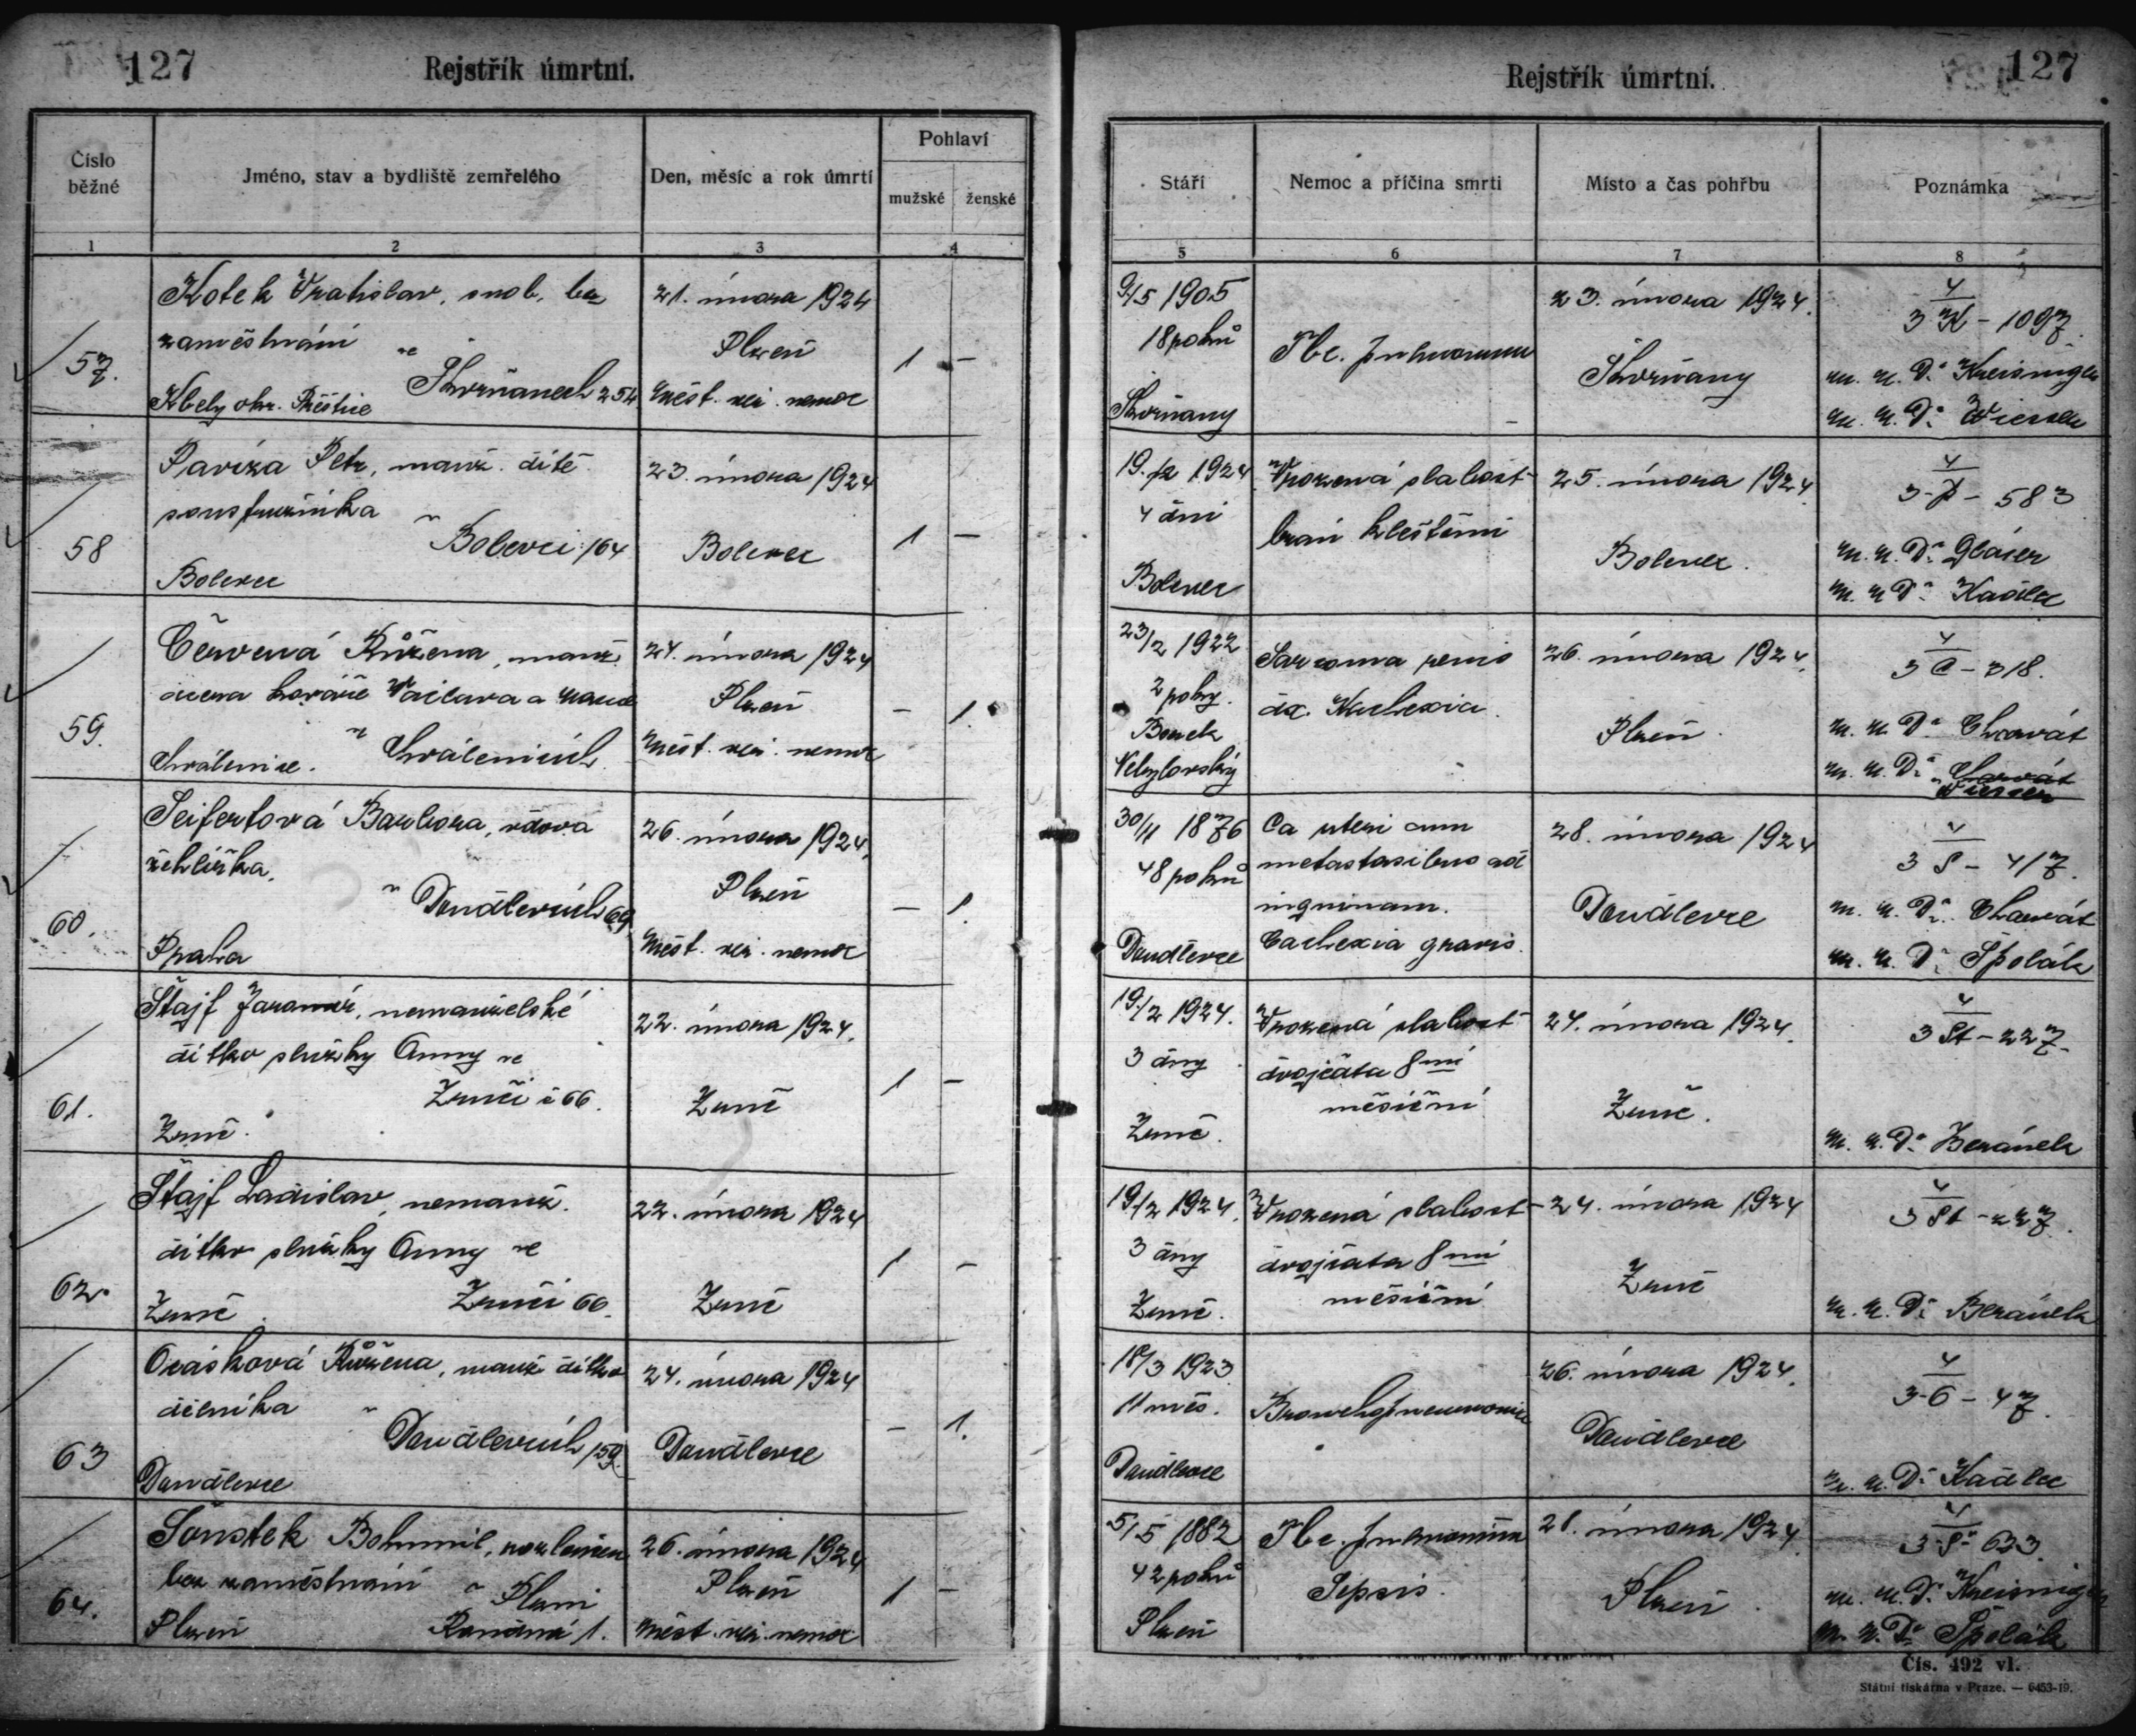 127
Rejstřík úmrtní.
Číslo běžné
Jméno, stav a bydliště zemřelého
Den, měsíc a rok úmrtí
Pohlaví
mužské
ženské
1
2
3
4
57.
Kotek Vratislav, svob. bez
zaměstnání
ve Skvrňanech 254
Kbely okr. Přeštice
21. února 1924
Plzeň
měst. veř. nemoc
1 —
58
Paviza Petr, manž. dítě
soustružníka
v Bolevci 164
Bolevec
23. února 1924
Bolevec
1 —
59.
Červená Růžena, manž.
dcera horáře Václava a
v Chválenicích
Chválenice.
24. února 1924
Plzeň
měst. veř. nemoc
— 1.
60.
Seifertová Barbora, vdova
žehlířka.
v Doudlevcích 69
Praha
26. února 1924.
Plzeň
měst. veř. nemoc
— 1.
61.
Štajf Jaromír, nemanželské
dítko služky Anny ve
Zruči č 66.
Zruč.
22. února 1924.
Zruč
1 —
62.
Štajf Ladislav, nemanž.
dítko služky Anny ve
Zruči 66.
Zruč.
22. února 1924
Zruč
1 —
63
Ocásková Růžena, manž dítko
dělníka
v Doudlevcích 159.
Doudlevce
24. února 1924
Doudlevce
— 1.
64.
Šoustek Bohumil, rozloučen
bez zaměstnání
v Plzni
Plzeň
1.
26. února 1924
Plzeň
měst. veř. nemoc
1 —
127
Rejstřík úmrtní.
Stáří
Nemoc a příčina smrti
Místo a čas pohřbu
Poznámka
5
6
7
8
9/5 1905
18 roků
Skvrňany
Tbc. pulmonum
23. února 1924.
Skvrňany
4
3 K - 1097.
m. u. Dr. Kreisinger
m. u. Dr. Wiesner
19./2 1924.
4 dni
Bolevec
Vrozená slabost
braní kleštěmi
25. února 1924.
Bolevec.
4
3-P- 583
m. u. Dr. Glaser
m. u. Dr. Kadlec
23/2 1922
2 roky.
Borek
Sarcoma renis
dx. Kachexia.
26. února 1924.
Plzeň.
4
3 C - 318.
m. u. Dr. Charvát
m. u. Dr. Charvát
Wiesner
30/11 1876
48 roků
Doudlevce
Ca uteri cum
metastasibus ad
inguinam.
Cachexia gravis.
28. února 1924
Doudlevce
4
3 S - 417.
m. u. Dr. Charvát
m. u. Dr. Špolák
19./2 1924.
3 dny
Zruč.
Vrozená slabost
dvojčata 8 mi
měsíční
24. února 1924.
Zruč.
4
3 St - 227.
m. u. Dr. Beránek
19/2 1924.
3 dny
Zruč.
Vrozená slabost
dvojčata 8 mi
měsíční
24. února 1924
Zruč
4
3 St - 227.
m. u. Dr. Beránek
18/3 1923.
11 měs.
Doudlevce
Bronchopneumonie
26. února 1924.
Doudlevce
4
3-O - 47.
m. u. Dr. Kadlec
5/5 1882
42 roků
Plzeň
Tbc. pulmonum
Sepsis.
28. února 1924.
Plzeň.
4
3-Š- 633.
m. u. Dr. Kreisinger
m. u. Dr. Špolák
Čís. 492 vl.
Státní tiskárna v Praze. — 6453-19.